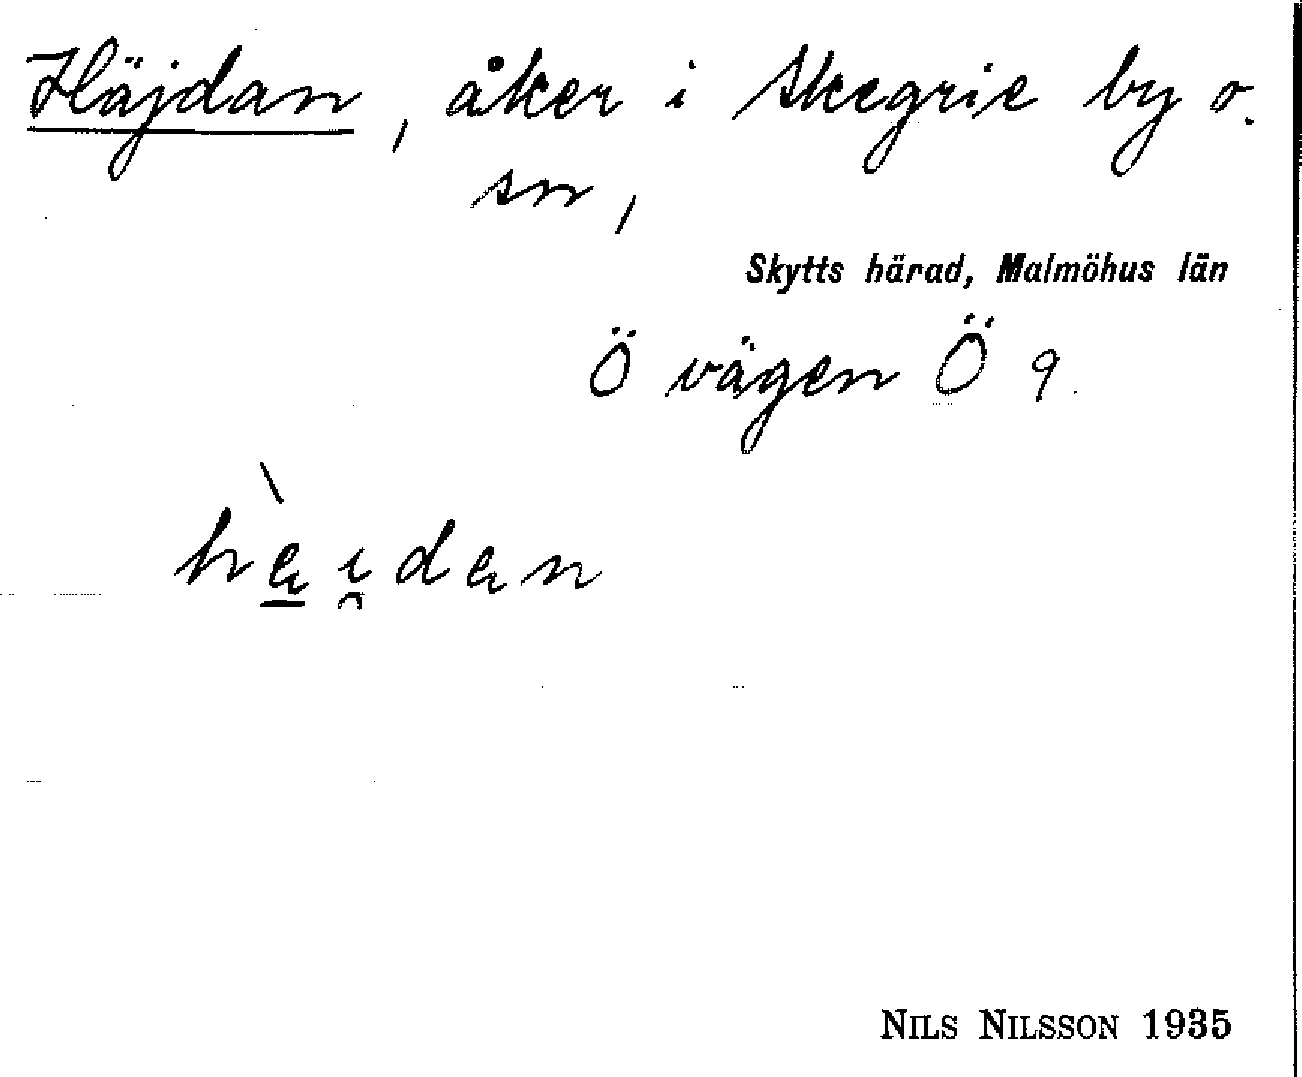 Häjdan, åker i Skegrie by o.
sn,
Skytts härad, Malmöhus län
Ö vägen Ö 9.
NILS NILSSON 1935